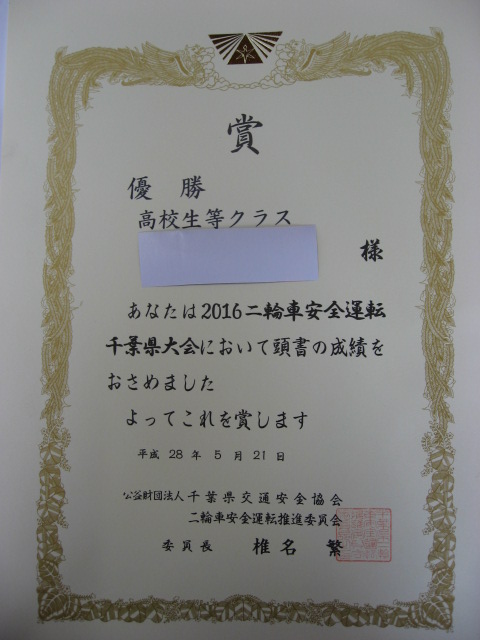 賞
優勝
高校生等クラス
様
あなたは2016二輪車安全運転
千葉県大会において頭書の成績を
おさめました
よってこれを賞します
平成28年5月21日
公益財団法人千葉県交通安全協会
二輪車安全運転推進委員会
委員長 椎名 繁